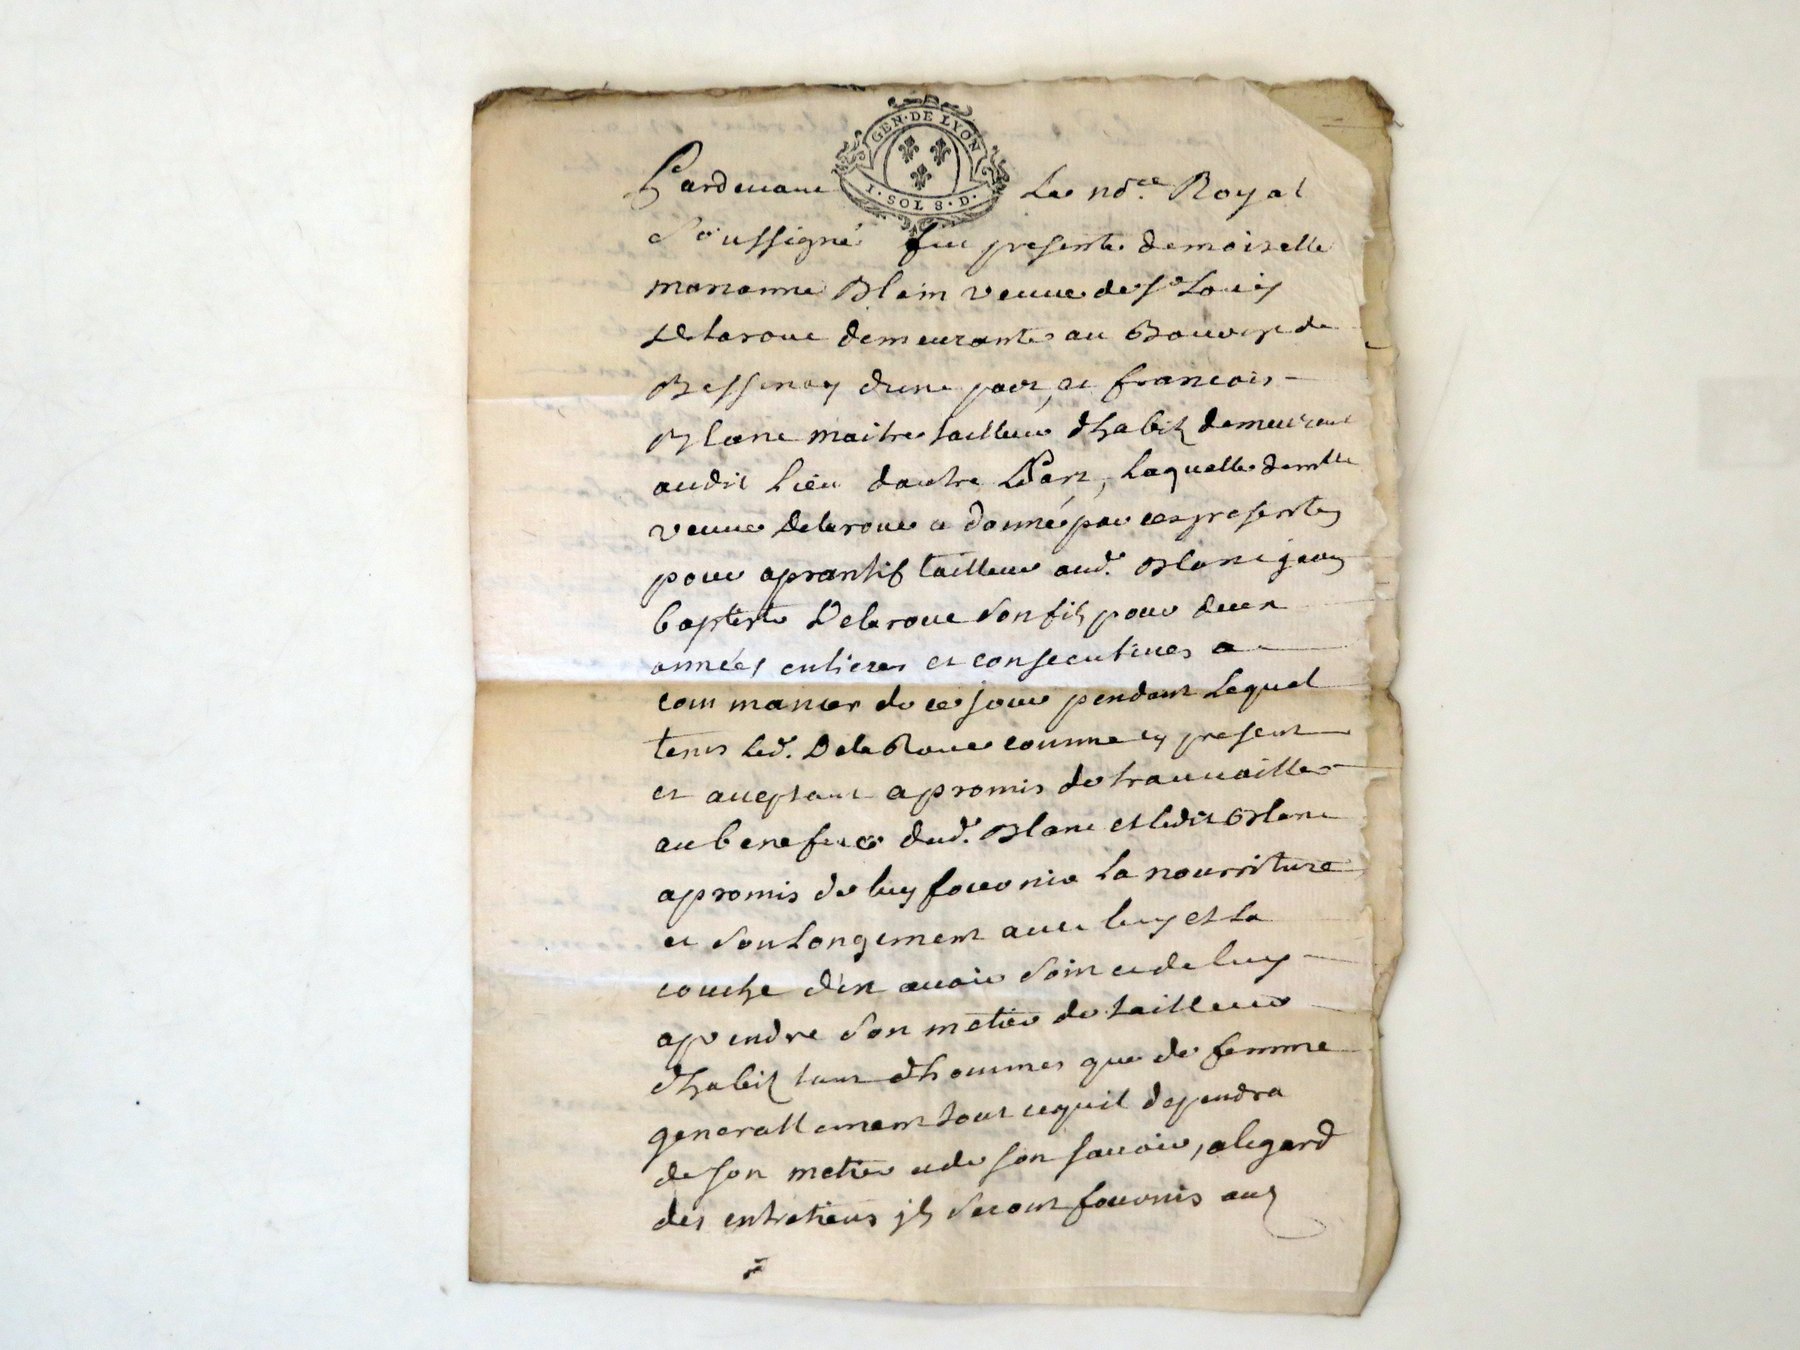 GEN·DE LYON
I·SOL 8·D·
Pardevant Le no.re Royal
Soussigné fut presente demoiselle
marianne Blain veuve de s.r Louis
Delaroue demeurante au Bourg de
Bessenay dune part, et francois
Blanc maitre tailleur dhabits demeurant
audit Lieu dautre Part, Laquelle demlle
veuve Delaroue a donné par ces presentes
pour aprantif tailleur aud. Blanc jean
baptiste Delaroue Son fils pour deux
années entieres et consecutives a
commancer de ce jour pendant Lequel
tems Led. Dela Roue comme cy present
et aceptant a promis de travvailler
au benefice dud. Blanc et ledit Blanc
a promis de luy fournir La nourriture
et Son Longement avec luy et La
couche den avoir Soin et de luy
aprendre Son metier de tailleur
dhabits tant dhommes que de femme
generallement tout cequil dependra
de son metier et de son savoir, alegard
des entretiens ils Seront fournis aud